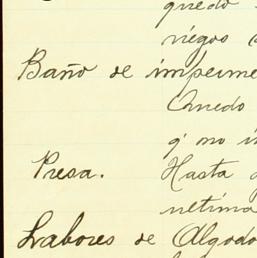 quedo
riegos
Baño de imperme
Quedo
q' no i
Presa.
Hasta
netima
Labores de Algodo